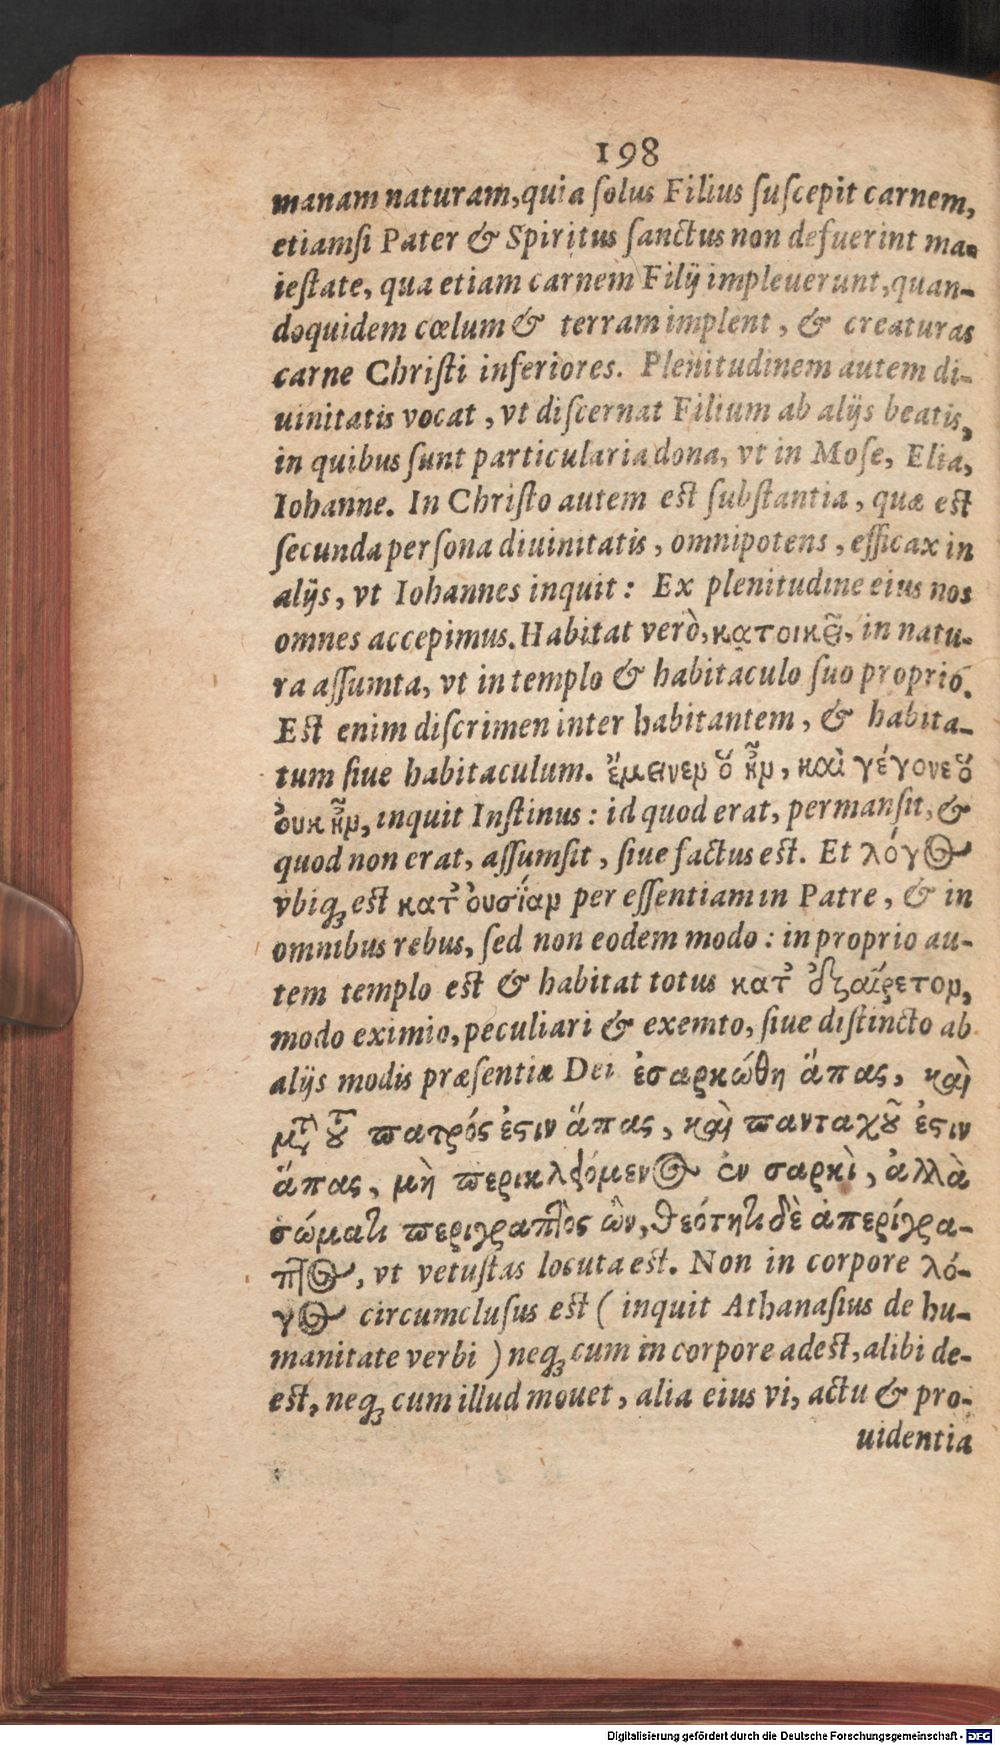 198
manam naturam, quia ſolus Filius ſuſcepit carnem,
etiamſi Pater & Spiritus ſanctus non defuerint ma-
ieſtate, qua etiam carnem Filij impleuerunt, quan-
doquidem cœlum & terram implent, & creaturas
carne Chriſti inferiores. Plenitudinem autem di-
uinitatis vocat, vt diſcernat Filium ab alijs beatis,
in quibus ſunt particularia dona, vt in Moſe, Elia,
Iohanne. In Chriſto autem eſt ſubſtantia, quæ eſt
ſecunda perſona diuinitatis, omnipotens, efficax in
alijs, vt Iohannes inquit: Ex plenitudine eius nos
omnes accepimus. Habitat verò, κατοικεῖ, in natu-
ra aſſumta, vt in templo & habitaculo ſuo proprio.
Eſt enim diſcrimen inter habitantem, & habita-
tum ſiue habitaculum. ἔμεινεν ὃ ἦν, καὶ γέγονε ὃ
ὀυκ ἦν, inquit Inſtinus: id quod erat, permanſit, &
quod non erat, aſſumſit, ſiue factus eſt. Et λόγος
vbiq; eſt κατ᾽ ὀυσίαν per eſſentiam in Patre, & in
omnibus rebus, ſed non eodem modo: in proprio au-
tem templo eſt & habitat totus κατ᾽ ἐξαίρετον,
modo eximio, peculiari & exemto, ſiue diſtincto ab
alijs modis præſentiæ Dei ἐσαρκώθη ἅπας, καὶ
μετὰ τοῦ πατρός ἐστιν ἅπας, καὶ πανταχοῦ ἐστιν
ἅπας, μὴ περικλειόμενος ἐν σαρκὶ, ἀλλὰ
σώματι περιγραπτὸς ὢν, θεότητι δὲ ἀπερίγρα-
πτος, vt vetuſtas locuta eſt. Non in corpore λό-
γος circumcluſus eſt (inquit Athanaſius de hu-
manitate verbi) neq; cum in corpore adeſt, alibi de-
eſt, neq; cum illud mouet, alia eius vi, actu & pro-
uidentia
Digitalisierung gefördert durch die Deutsche Forschungsgemeinschaft - DFG